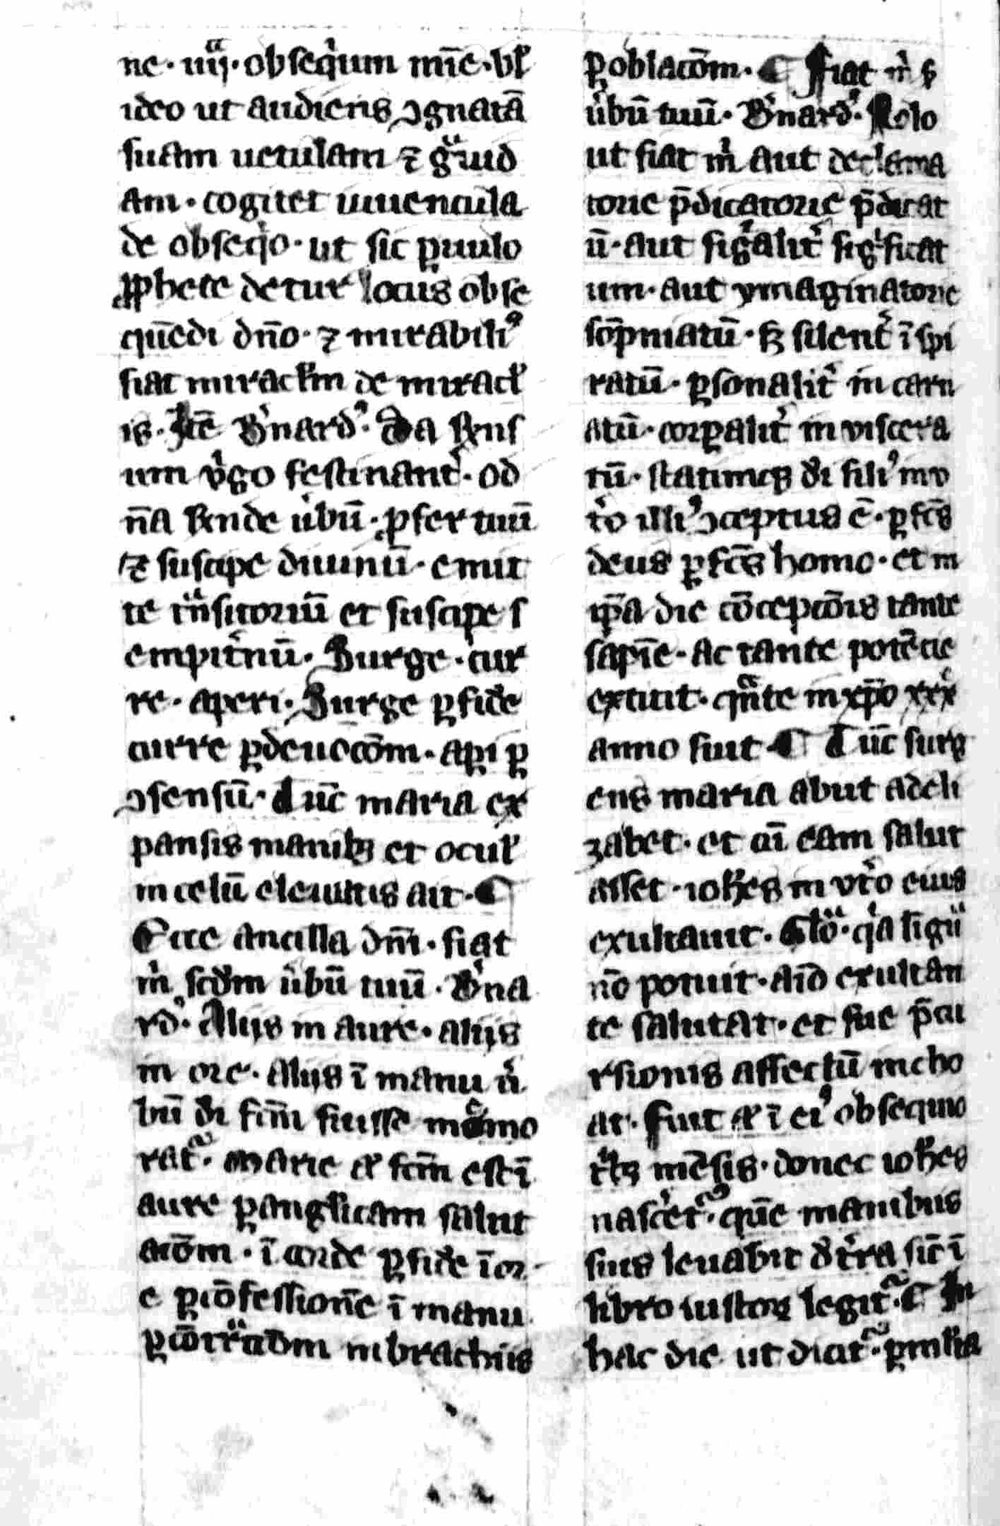 ne · iiij · obsequium mīe · vl'
ideo ut audiens ꝯgnatā
suam uetulam ⁊ gͣuid
am · cogitet iuuencula
de obseqͥo · ut sic ꝑuulo
ꝓphete detur locus obse
qūedi dn̄o · ⁊ mirabiliꝰ
fiat miracl'm de miracl'
is · Itē B'nardꝰ · Da rn̄s
um v'go festinant' · O d
n̄a rn̄de u'bū · ꝓfer tuū
⁊ suscipe diuinū · emit
te tͣnsitoriū et suscipe s
empit'nū · Surge · cur
re · aperi · Surge ꝑ fidē
curre ꝑ deuocōm · aꝑi ꝑ
ꝯsensū · Tūc maria ex
pansis manibꝫ et ocul'
in celū eleuatis ait · ¶
Ecce ancilla dn̄i · fiat
m' scd'm u'bū tuū · B'na
rdꝰ · Alijs in aure · alijs
in ore · alijs ī manu u'
bū di fcm̄ fuisse memo
rat᷑ · Marie ⁊ fcm̄ est ī
aure ꝑ angl'icam salut
acōm · ī corde ꝑ fidē ī or
e ꝑ cōfessionē ī manu
ꝑ cōtrͣctacōm in brachijs
ꝑ oblacōm · ¶ Fiat m' s
u'bū tuū · B'nardꝰ · Nolo
ut fiat m' aut declama
torie p̄dicatorie p̄dicat
ū · aut figͣalit' figͥficat
um · aut ymaginatorie
sōpniatū · sꝫ silent' īspi
ratū · ꝑsonalit' in carn
atū · corꝑalit' in viscera
tū · statimqꝫ di filiꝰ in v
t'o illiꝰ ꝯceptus ē · ꝑfcs̄
deus ꝑfcs̄ homo · et in
ip̄a die cōcepcōis tante
sapīe · ac tante potēcie
extitit · qͣnte in xp̄o xxx'
anno fuit ¶ Tūc surg
ens maria abiit ad eli
zabet · et cū eam salut
asset · ioh'es in vt'o eius
exultauit · Glōͣ · qͥa ligua
nō potuit · aīo exultan
te salutat · et sue p̄cu
rsionis affectū incho
at · Fuit ⁊ ī eiꝰ obsequio
tͥbꝫ mēsis · donec ioh'es
nascet᷑ · quē manibus
suis leuabit d' t'ra sic̄ ī
libro iustoꝝ legit᷑ · ¶ In
hac die ut dicit᷑ · ꝑ mlta